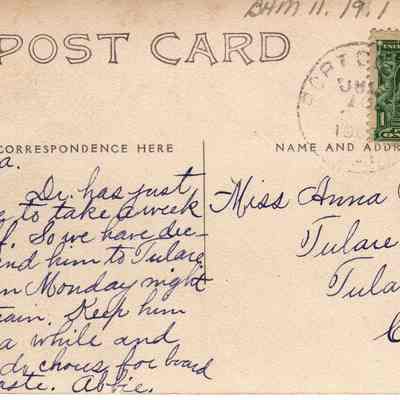 BHM 11. 19.1
POST CARD
CORRESPONDENCE HERE
NAME AND ADDR
a.
Dr. has just
to take a week
f. So we have dec-
end him to Tulare
n Monday night
rain. Keep him
a while and
chous for board
aste. Abbie.
Miss Anna
Tulare
Tula
C
1